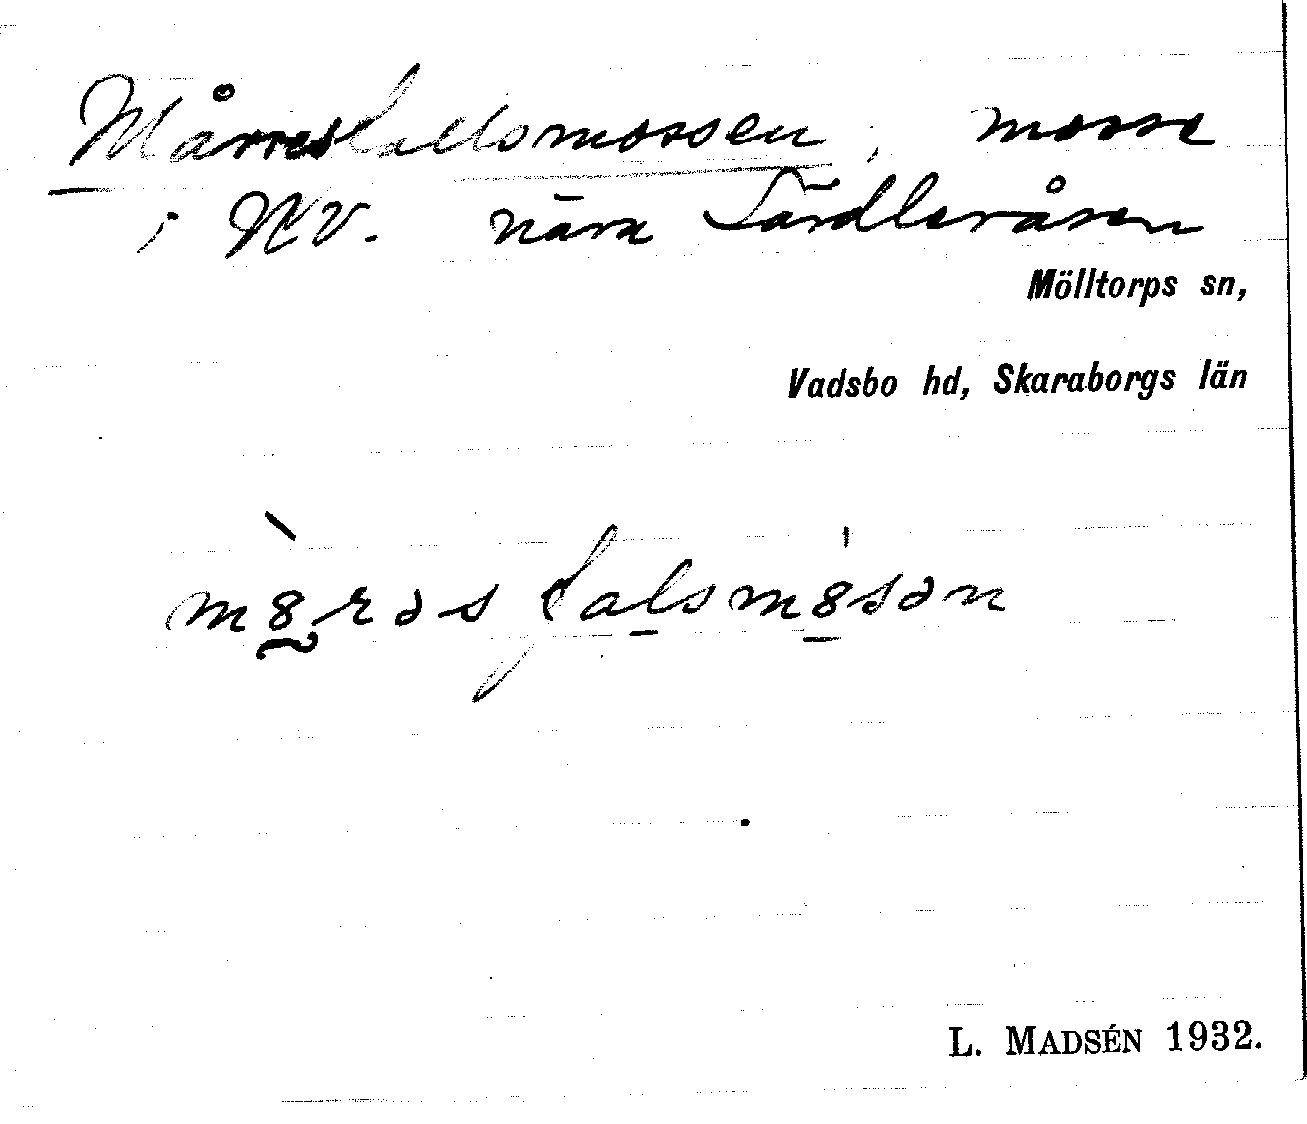 Mårrestallsmossen, mosse
i NV. nära Lärdleråsen
Mölltorps sn,
Vadsbo hd, Skaraborgs län
L. MADSÉN 1932.